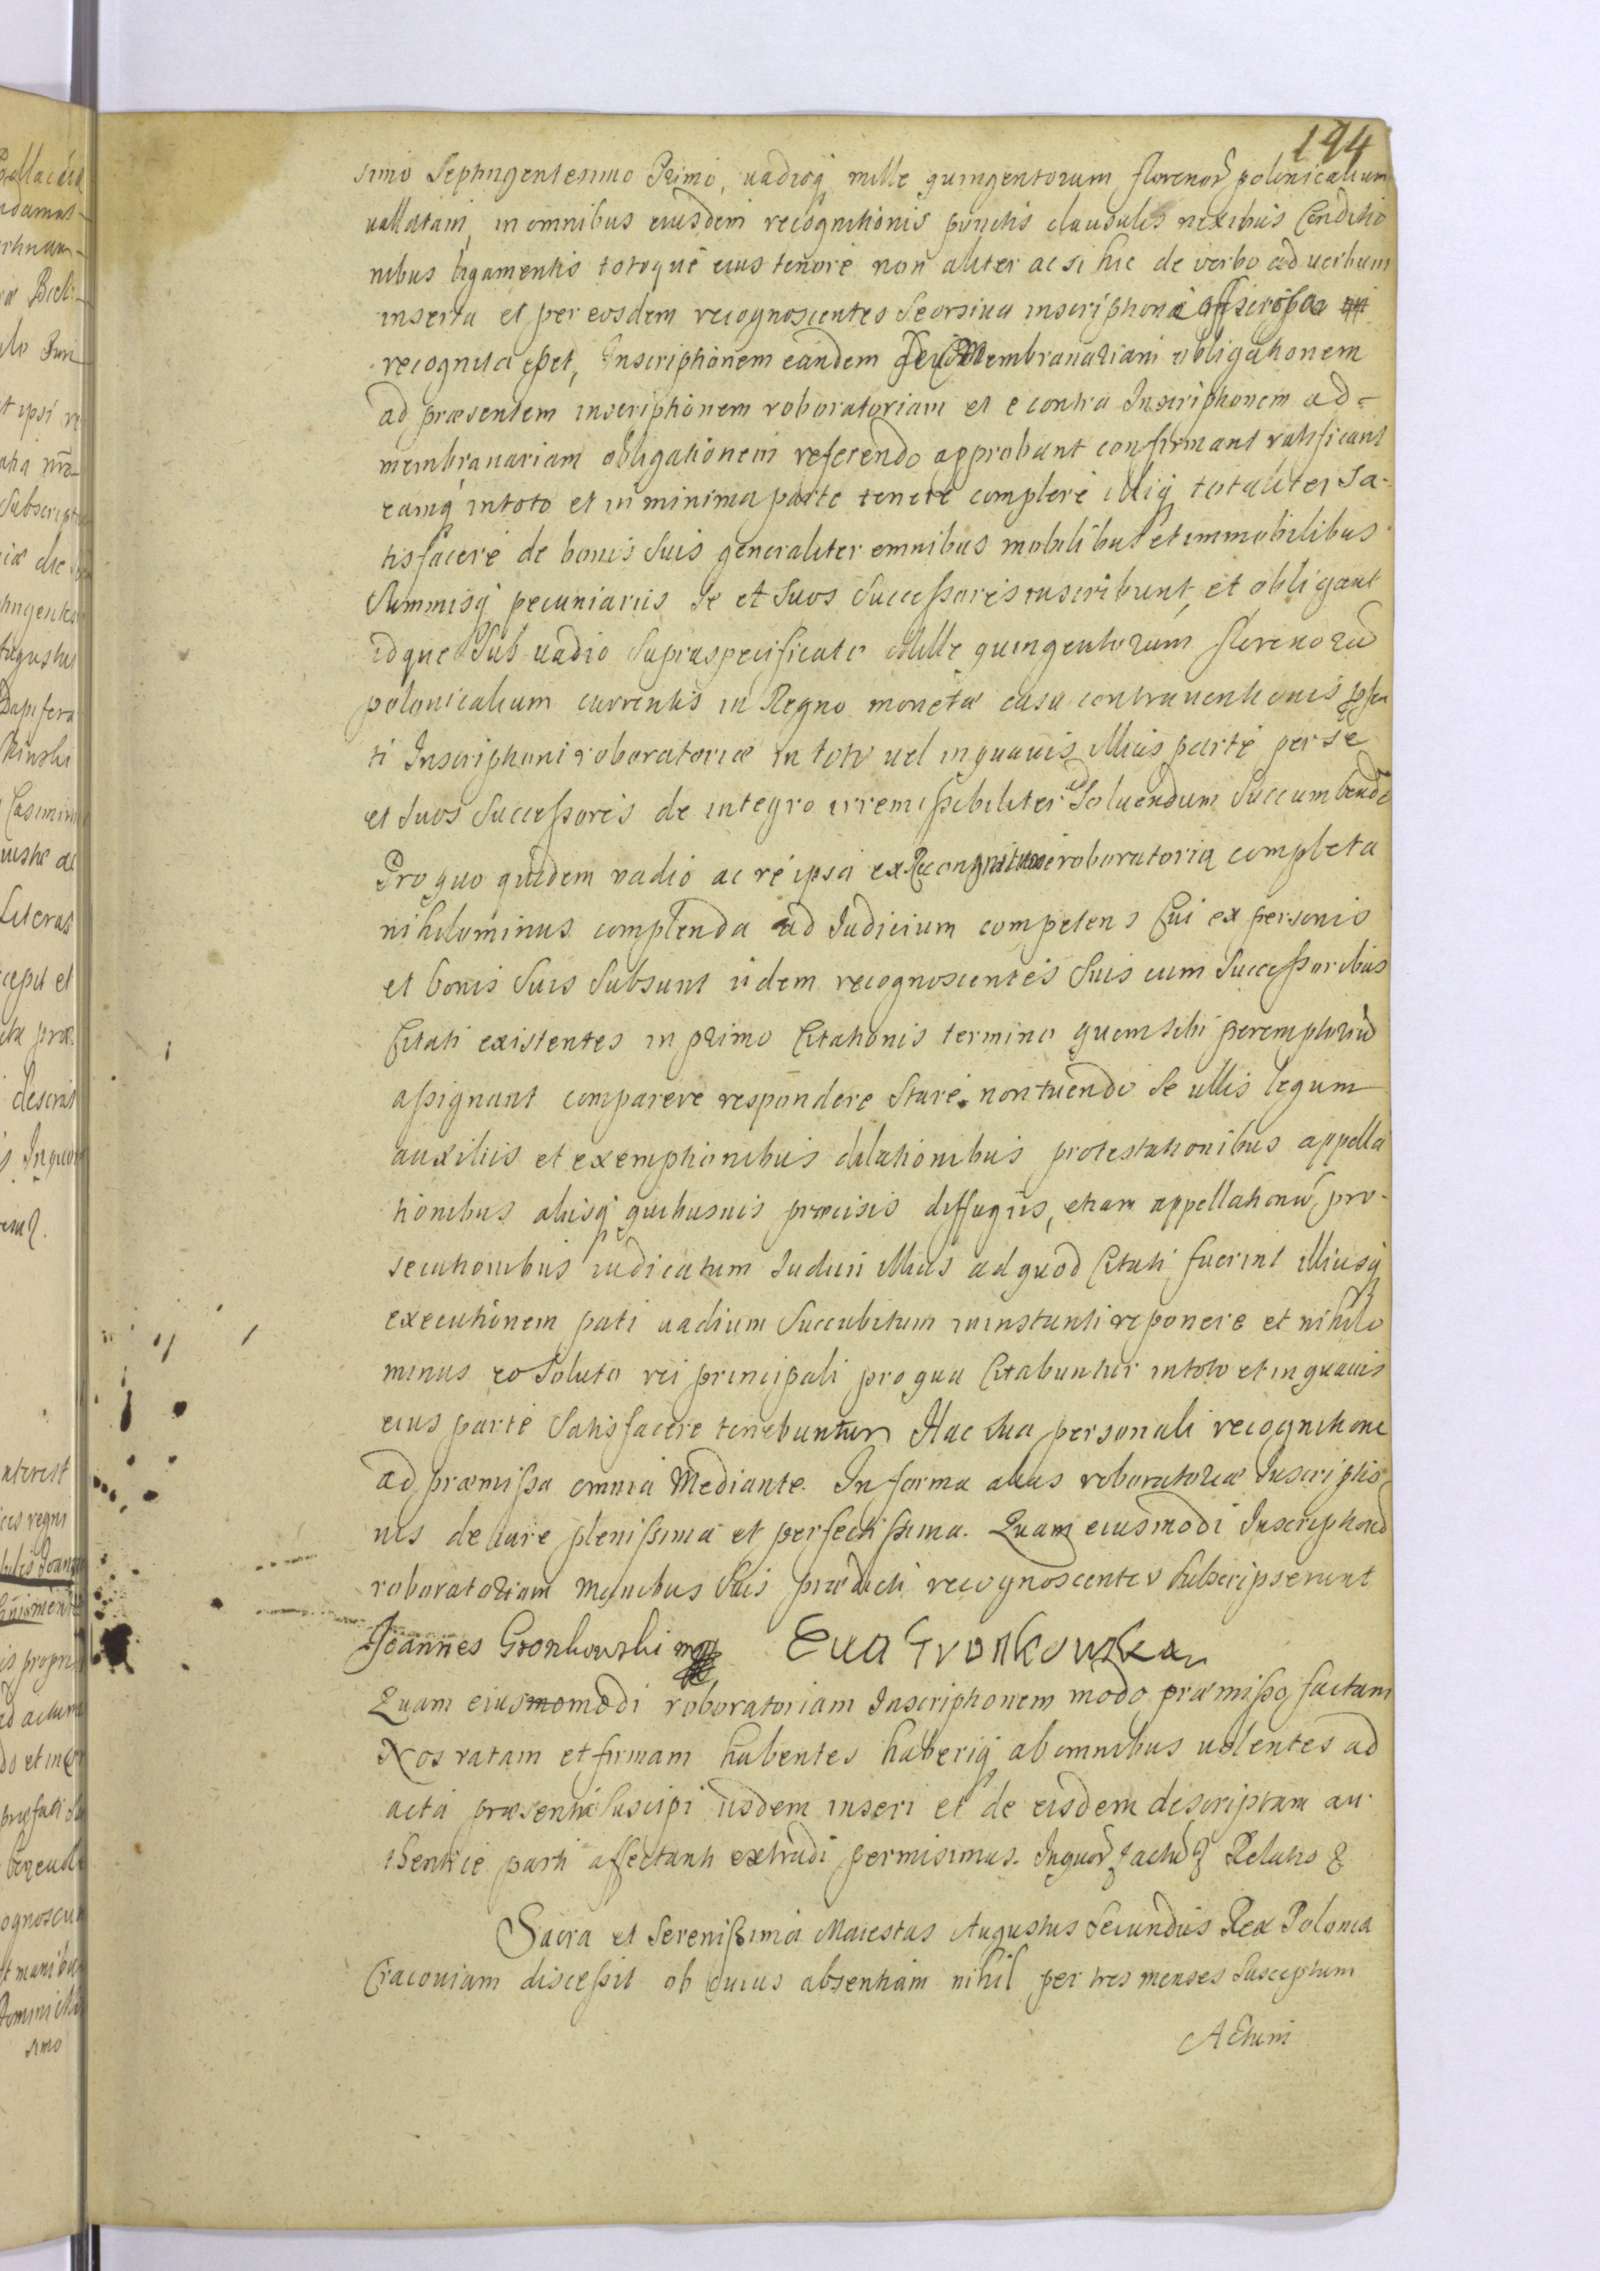 194
simo Septingentesimo Primo, vadioq mille quingentorum florenor polonicalium
vallatam, in omnibus eiusdem recognitionis punctis clausulis nexibus Conditio
nibus ligamentis totoque eius tenore non aliter ac si hic de verbo ad verbum
inserta et per eosdem recognoscentes Seorsiva inscriptione
recognita esset, Inscriptionem eandem seu Membranariam obligationem
ad præsentem inscriptionem roboratoriam et e contra Inscriptionem ad=
membranariam obligationem referendo approbant confirmant ratificant
eamq in toto et in minima parte tenere complere illiq totaliter Sa-
tisfacere de bonis Suis generaliter omnibus mobilibus et immobilibus
Summisq pecuniariis Se et Suos Successores inscribunt, et obligant
idque Sub vadio Supraspecificato Mille quingentorum florenorū
polonicalium currentis in Regno monetæ casu contraventionis
ti Inscriptioni roboratoriæ in toto vel in quavis illius parte per se
et Suos Successores de integro irremissibiliter ad Solvendum Succumbendo
Pro quo quidem vadio ac re ipsa ex roboratoria completa
nihilominus complenda ad Iudicium competens Cui ex personis
et bonis Suis Subsunt iidem recognoscentes Suis cum Successoribus
Citati existentes in primo Citationis termino quem sibi peremptoriū
assignant comparere respondere Stare. non tuendo Se ullis legum
auxiliis et exemptionibus dilationibus protestationibus appella
tionibus aliisq quibusvis præcisis diffugiis, etiam appellationū pro-
secutionibus iudicatum Iudicii illius ad quod Citati fuerint illiusq
executionem pati vadium Succubitum in instanti reponere et nihilo
minus eo Soluto rei principali pro qua Citabuntur in toto et in quavis
eius parte Satisfacere tenebuntur Hac Sua personali recognitione
ad præmissa omnia Mediante. In forma alias roboratoriæ Inscriptio
nis de iure plenissima et perfectissima. Quam eiusmodi Inscriptionē
roboratoriam Manibus Suis prædicti recognoscentes Subscripserunt
Joannes Gronkowski mpp Eva Gronkowska
Quam eiusmomodi roboratoriam Inscriptionem modo præmisso factam
Nos ratam et firmam habentes haberiq ab omnibus volentes ad
acta præsentia Suscipi iisdem inseri et de eisdem descriptam au-
thentice parti affectanti extradi permisimus. Inquor Relatio
Sacra et Serenissima Maiestas Augustus Secundus Rex Polonia
Cracoviam discessit ob cuius absentiam nihil per tres menses Susceptum
Actum